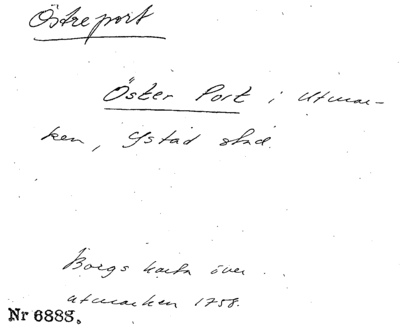 Östreport
Öster Port i utmar-
ken, Ystad stad.
Borgs karta över
utmarken 1758.
Nr 6888.